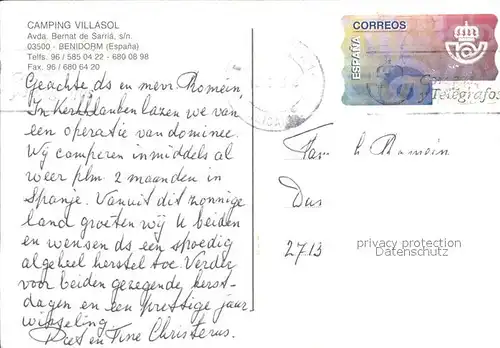 CAMPING VILLASOL
Avda. Bernat de Sarriá, s/n.
03500 - BENIDORM (España)
Telfs. 96 / 585 04 22 - 680 08 98
Fax. 96 / 680 64 20
Geachte ds en mevr Romein,
In Kerkklanken lazen we van
een operatie van dominee.
Wij camperen inmiddels al
weer plm. 2 maanden in
Spanje. Vanuit dit zonnige
land groeten wij U beiden
en wensen ds een spoedig
algeheel herstel toe. Verder
voor beiden gezegende kerst-
dagen en een prettige jaar
wisseling.
Piet en Tine Christerus.
CORREOS
ESPAÑA
y Telégrafos
Fam. Romein
2713
privacy protection
Datenschutz